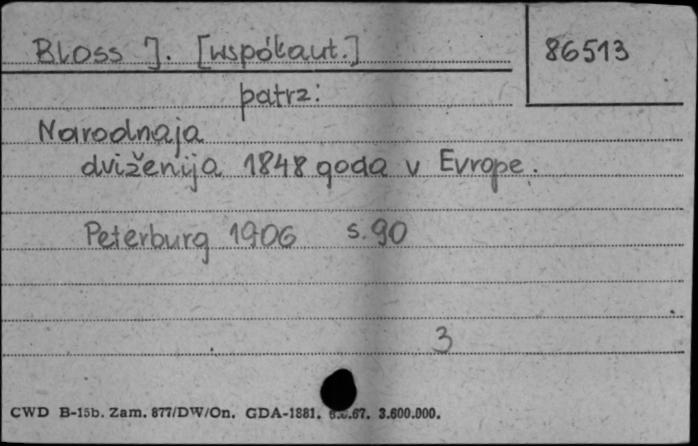 Bloss J. [współaut.]
86513
patrz:
Narodnaja
dviženija 1848 goda v Evrope.
Peterburg 1906 s. 90
3
CWD B-15b. Zam. 877/DW/On. GDA-1881. 67. 3.600.000.